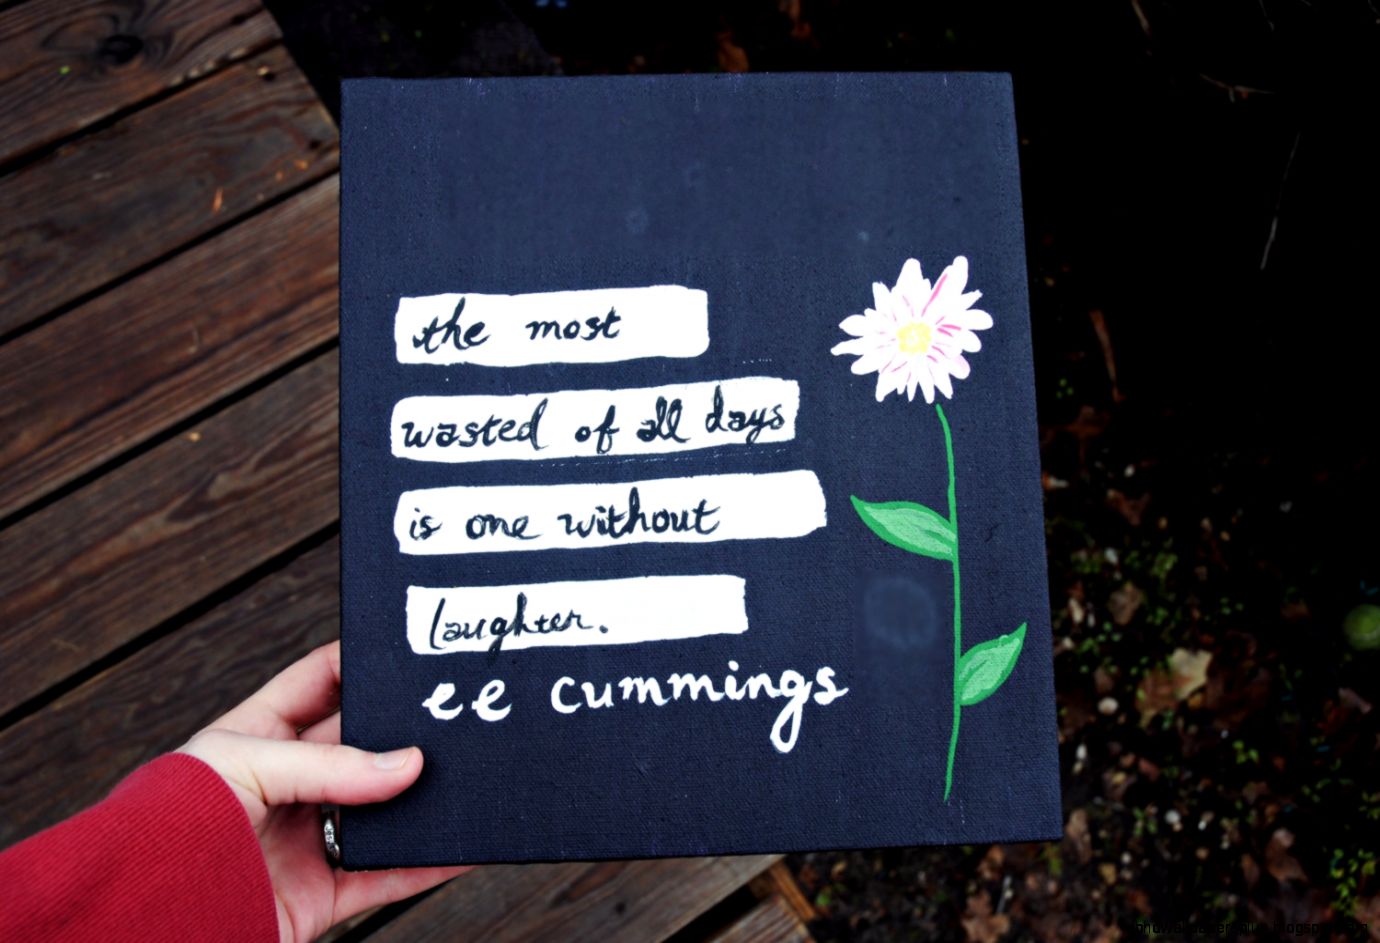 the most
wasted of all days
is one without
laughter.
ee cummings